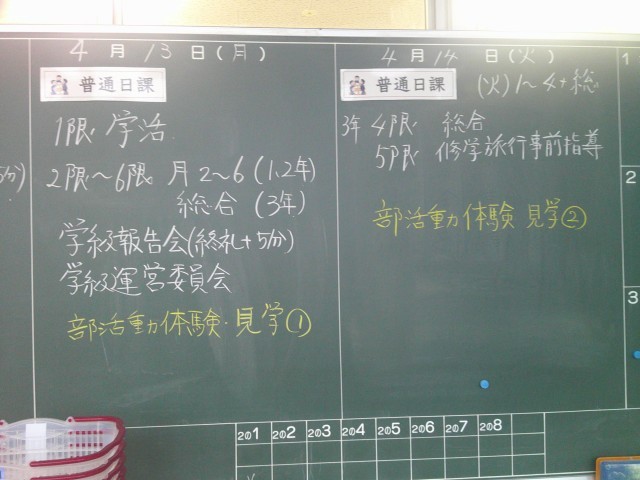 4月13日(月)
普通日課
1限 学活
2限～6限 月2～6(1,2年)
総合(3年)
学級報告会(終礼+5分)
学級運営委員会
部活動体験・見学①
4月14日(火)
普通日課
(火)1～4+総
3年 4限 総合
5限 修学旅行事前指導
部活動体験 見学②
5分)
1
2
3
2の1 2の2 2の3 2の4 2の5 2の6 2の7 2の8